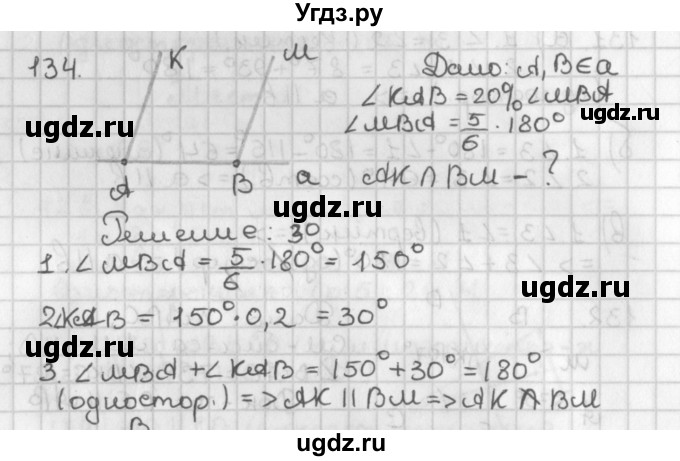 Угдз.ру
134.
K
M
Дано: A, B∈a
∠KAB = 20% ∠MBA
∠MBA = 5/6 · 180°
AK ∩ BM - ?
A
B
a
Решение: 30
1. ∠MBA = 5/6 · 180° = 150°
2∠KAB = 150° · 0,2 = 30°
3. ∠MBA + ∠KAB = 150° + 30° = 180°
(одностор.) => AK || BM => AK ∩ BM
B
ugdz.ru
ugdz.ru
ugdz.ru
ugdz.ru
ugdz.ru
ugdz.ru
ugdz.ru
ugdz.ru